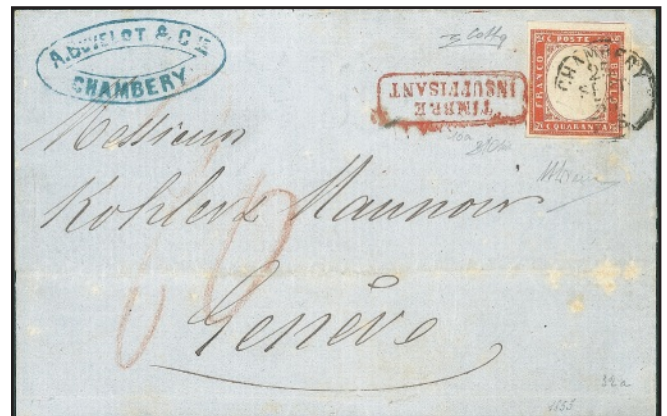 A. DUVELOT & CIE
CHAMBERY
TIMBRE
INSUFFISANT
C. POSTE
FRANCO
BOLLO
C. QUARANTA
CHAMBERY
Messieurs
Kohler & Maunoir
Genève
32a
1855